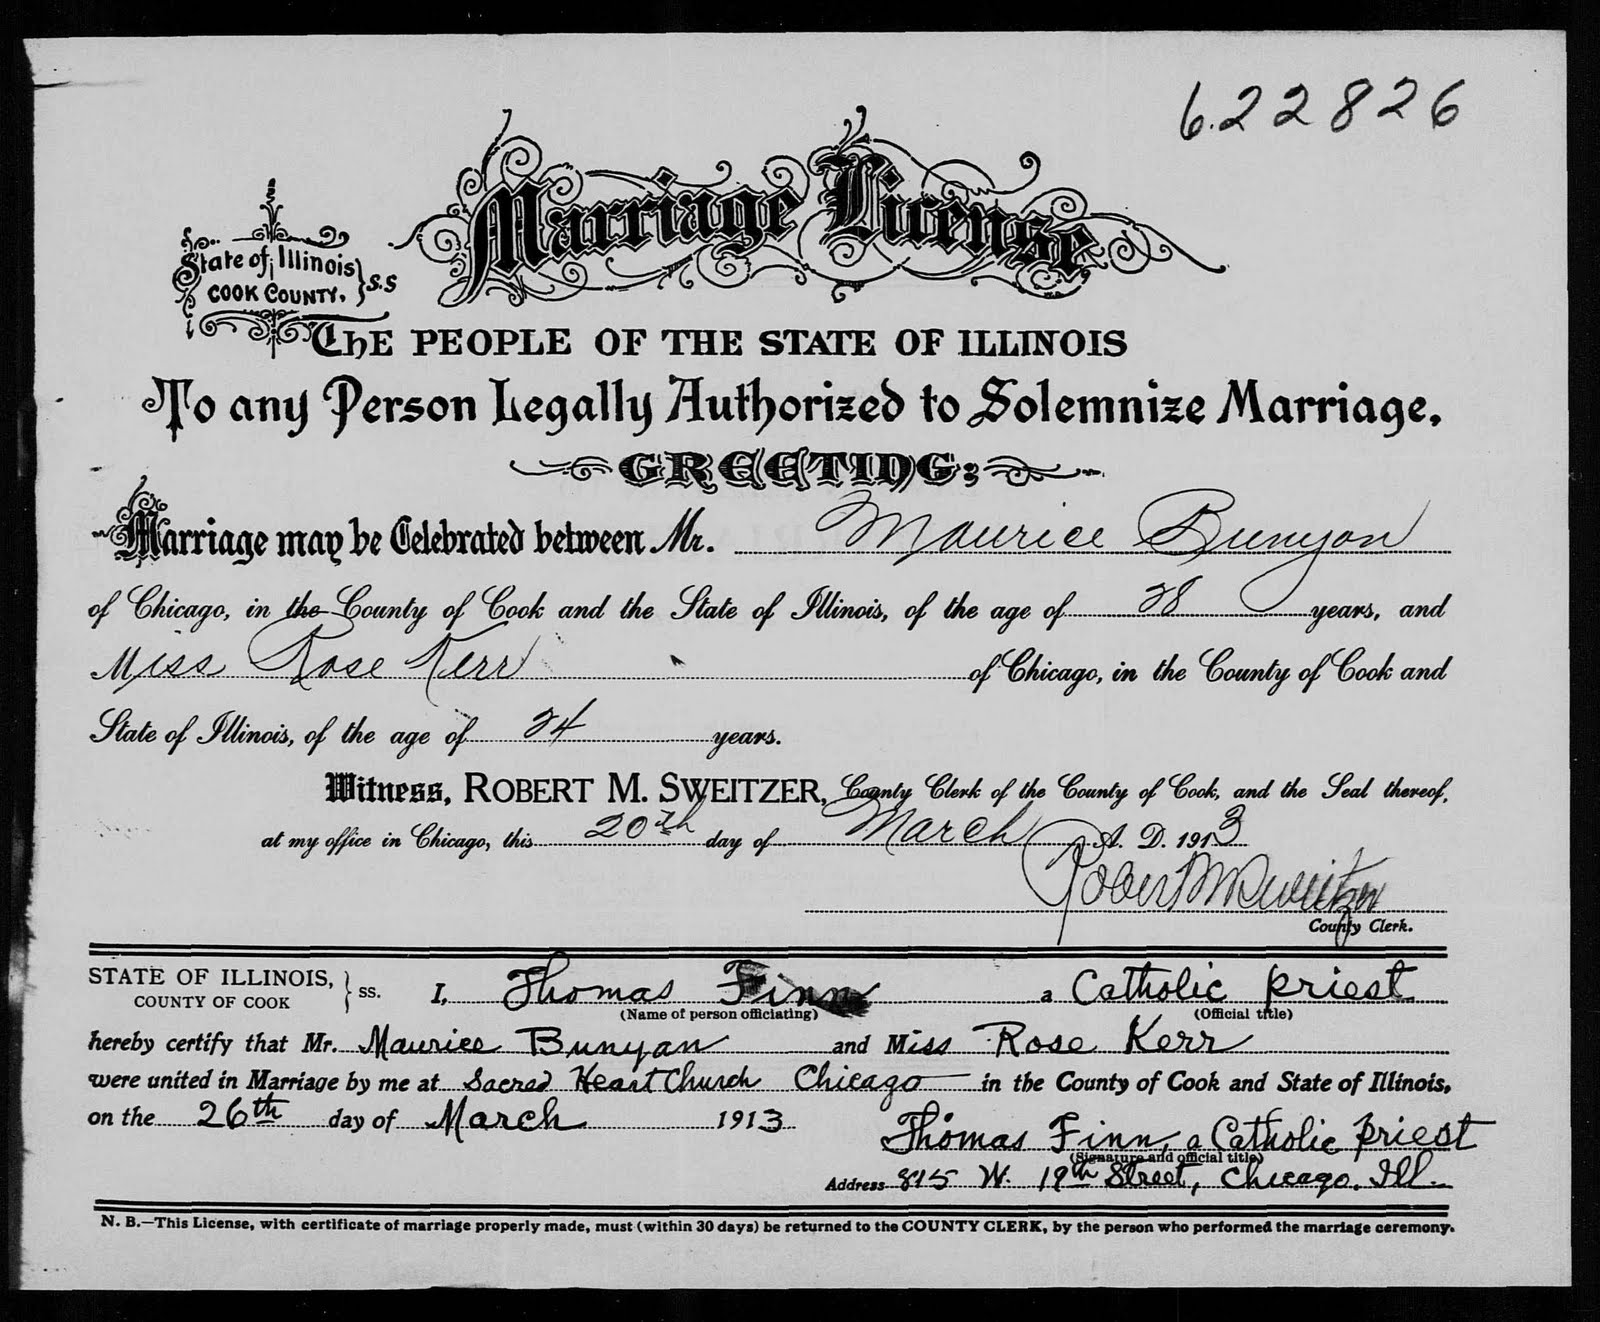 6.22826
Marriage License
State of Illinois
COOK COUNTY. } S.S
THE PEOPLE OF THE STATE OF ILLINOIS
To any Person Legally Authorized to Solemnize Marriage,
GREETING:
Marriage may be Celebrated between Mr. Maurice Bunyon
of Chicago, in the County of Cook and the State of Illinois, of the age of 28 years, and
Miss Rose Kerr of Chicago, in the County of Cook and
State of Illinois, of the age of 24 years.
Witness, ROBERT M. SWEITZER, County Clerk of the County of Cook, and the Seal thereof,
at my office in Chicago, this 20th day of March A. D. 1913
Robert M Sweitzer
County Clerk.
STATE OF ILLINOIS, } ss. I, Thomas Finn a Catholic priest
COUNTY OF COOK (Name of person officiating) (Official title)
hereby certify that Mr. Maurice Bunyan and Miss Rose Kerr
were united in Marriage by me at Sacred Heart Church Chicago in the County of Cook and State of Illinois,
on the 26th day of March 1913
Thomas Finn, a Catholic priest
(Signature and official title)
Address 815 W. 19th Street, Chicago. Ill.
N. B.—This License, with certificate of marriage properly made, must (within 30 days) be returned to the COUNTY CLERK, by the person who performed the marriage ceremony.